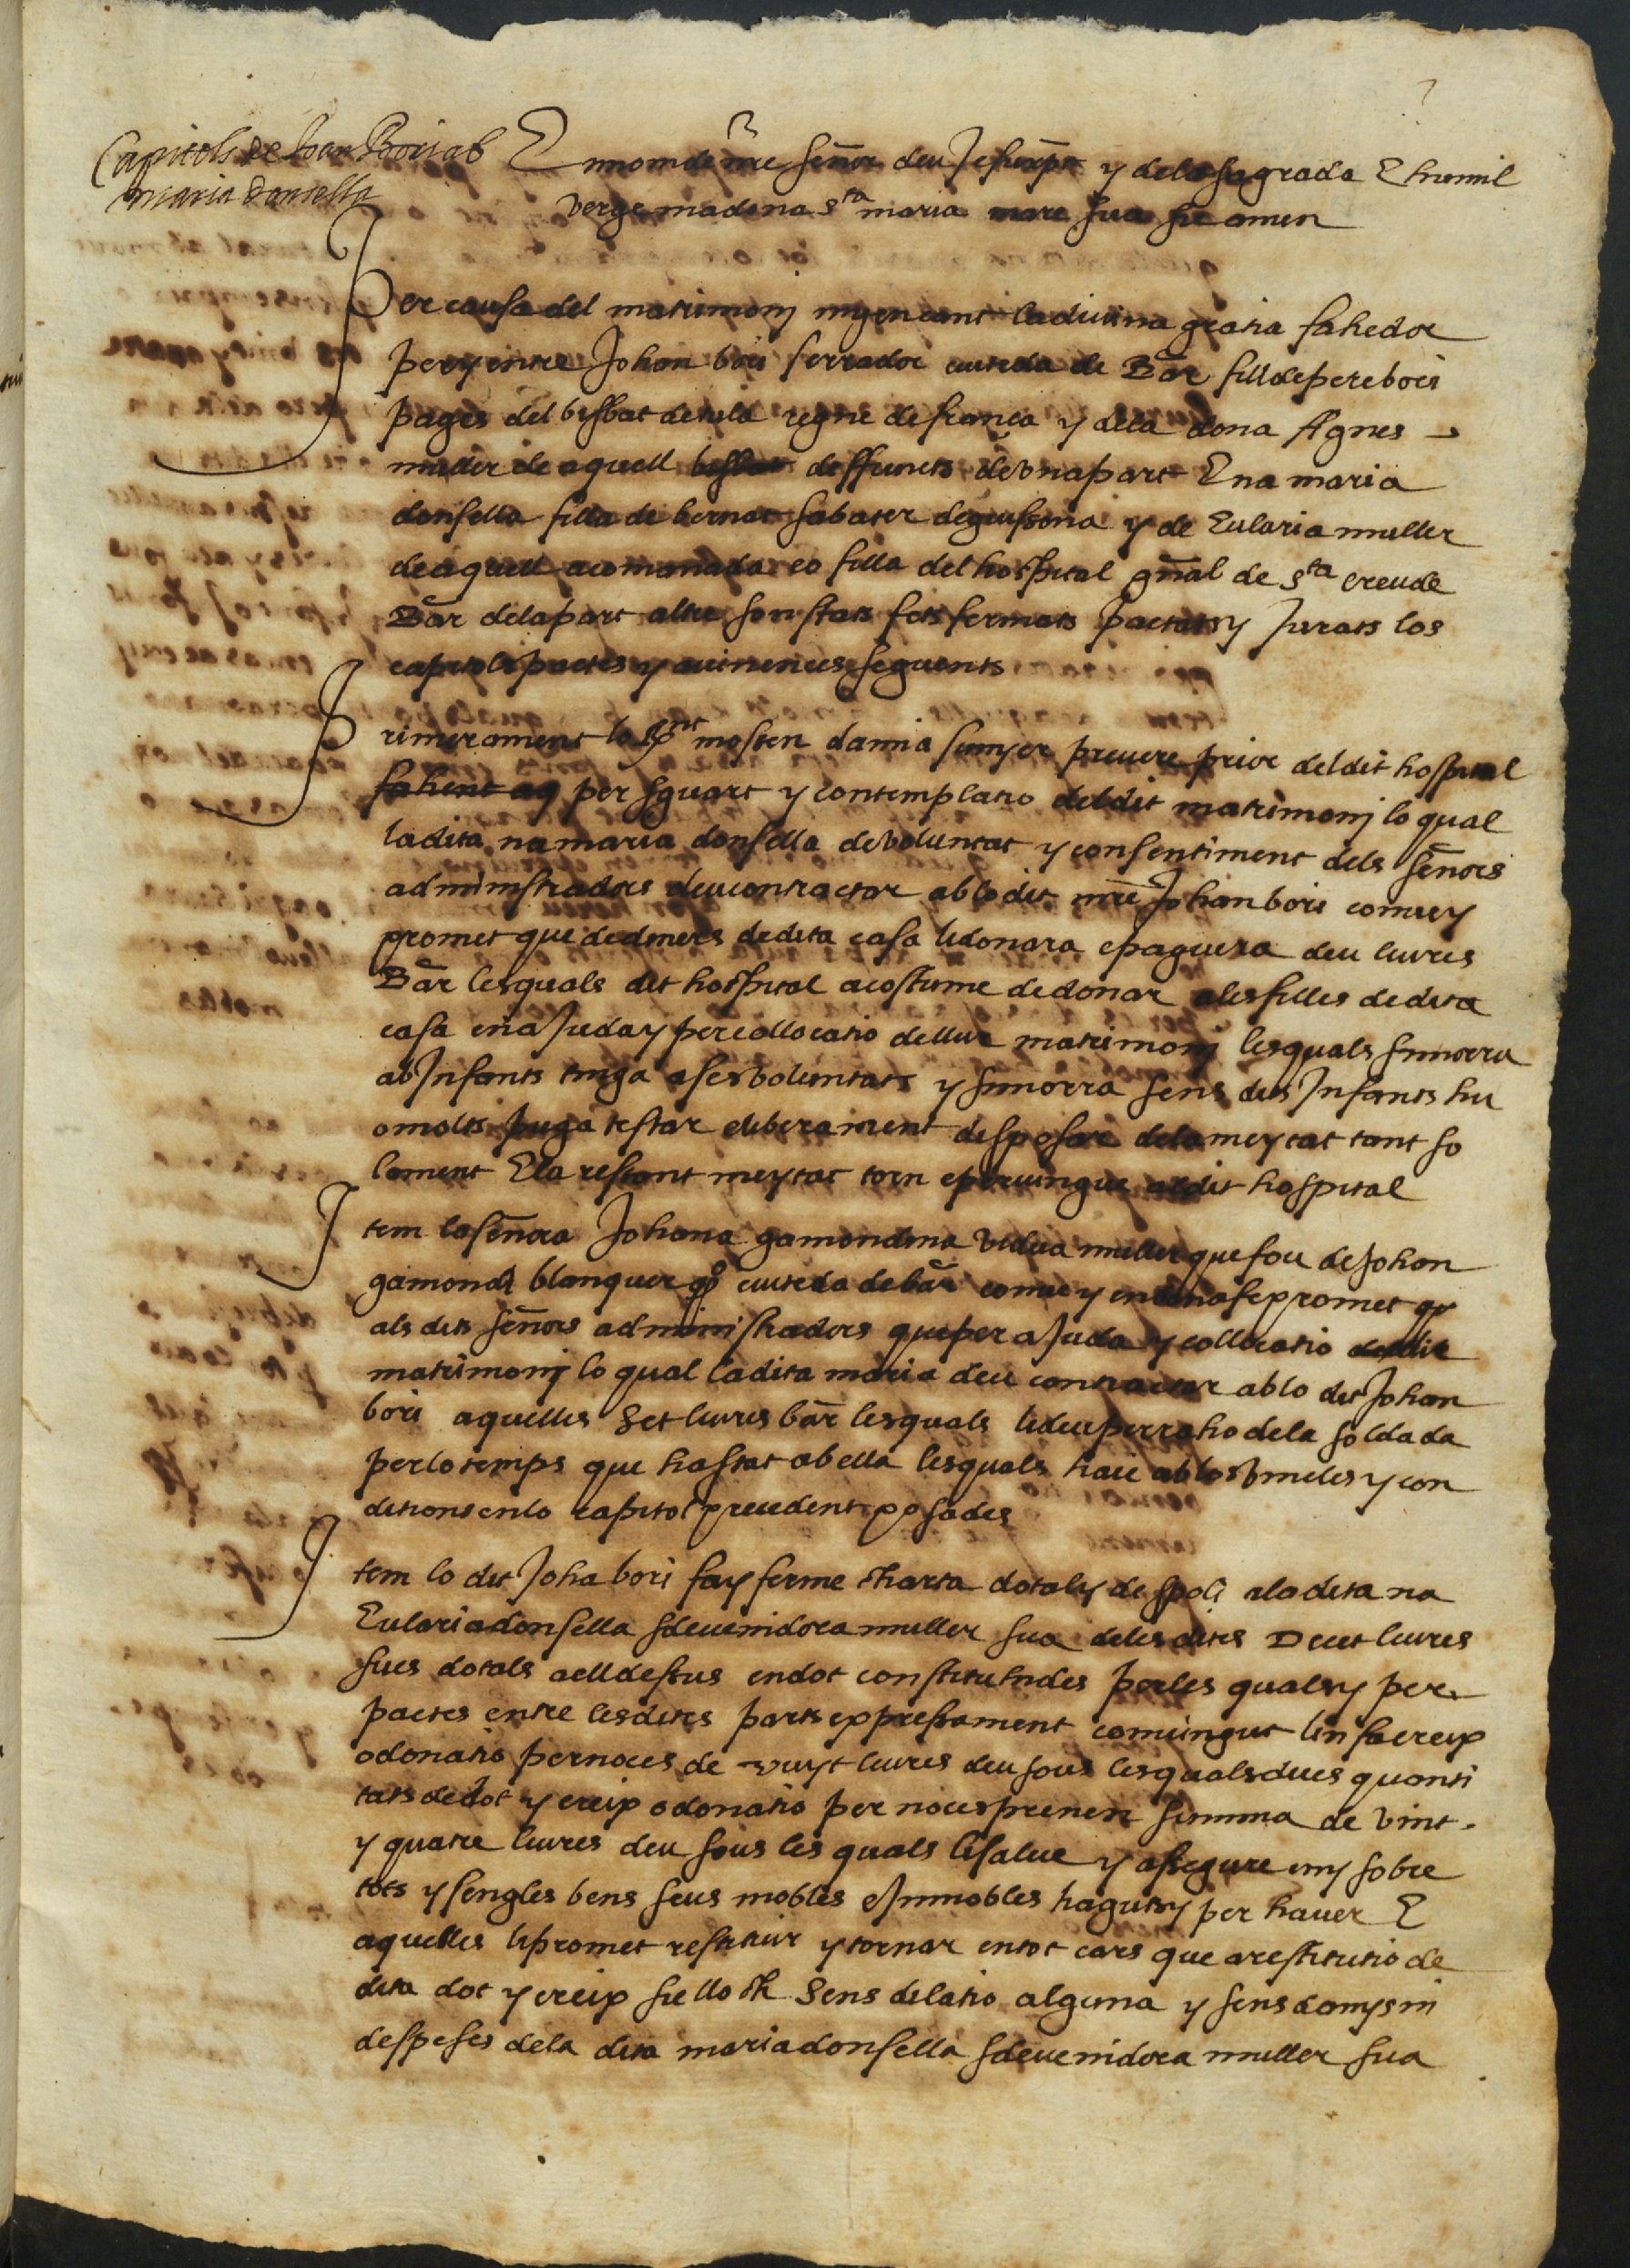 Capitols de Joan Bori ab
maria donsella
En nom de nre señor deu Jesuxpt y dela sagrada E humil
verge madona sta maria mare sua sie amen
Per causa del matrimonj migencant la diuina gratia fahedor
per y entre Johan bori serrador ciuteda de Bar fill de pere bori
pages del bisbat de tula regne de franca y dela dona Agnes
muller de aquell bisbat deffuncts de vna part E na maria
donsella filla de bernat sabater de guissona y de Eularia muller
de aquell acomanada eo filla del hospital gñal de sta creu de
Bar dela part altre son stats fets fermats pactats y Jurats los
capitols pactes y auinences seguents
Primerament lo Rnt mossen damia sunyer preuere prior del dit hospital
fahent aq per sguart y contemplatio del dit matrimonj lo qual
la dita na maria donsella de voluntat y consentiment dels señors
administradors deu contractar ab lo dit mre Johan bori conue y
promet que de diners de dita casa li donara e paguera deu liures
Bar les quals dit hospital acostume de donar a les filles de dita
casa en aJuda y per collocatio de llur matrimonj les quals si morra
ab Infants tinga a ses voluntats y si morra sens dits Infants hu
o molts puga testar e liberament disposar de la meytat tant so
lament E la restant meytat torn e peruingue al dit hospital
Item la señora Johana gamondina viuda muller que fou de Johan
gamondi blanquer qo ciuteda de bar conue y en bona fe promet
als dits señors administradors que per aJuda y collocatio del dit
matrimonj lo qual la dita maria deu contractar ab lo dit Johan
bori aquelles set liures bar les quals li deu per raho de la soldada
per lo temps que ha stat ab ella les quals haie ab los vincles y con
ditions en lo capitol precedent posades
Item lo dit Joha bori fa y ferme charta dotal y de spoli a la dita na
Eularia donsella sdeuenidora muller sua de les dites Deset liures
sues dotals a ell dessus en dot constituhides per les quals y per
pactes entre les dites parts expressament comuingut li fa creix
o donatio per noces de vuyt liures deu sous les quals dues quanti
tats de dot y creix o donatio per noces prenen summa de vint
y quatre liures deu sous les quals li salue y assegure en y sobre
tots y sengles bens seus mobles e Inmobles haguts y per hauer E
aquelles li promet restituir y tornar en tot cars que a restitutio de
dita dot y creix sie lloch Sens dilatio alguna y sens danys ni
despeses de la dita maria donsella sdeuenidora muller sua